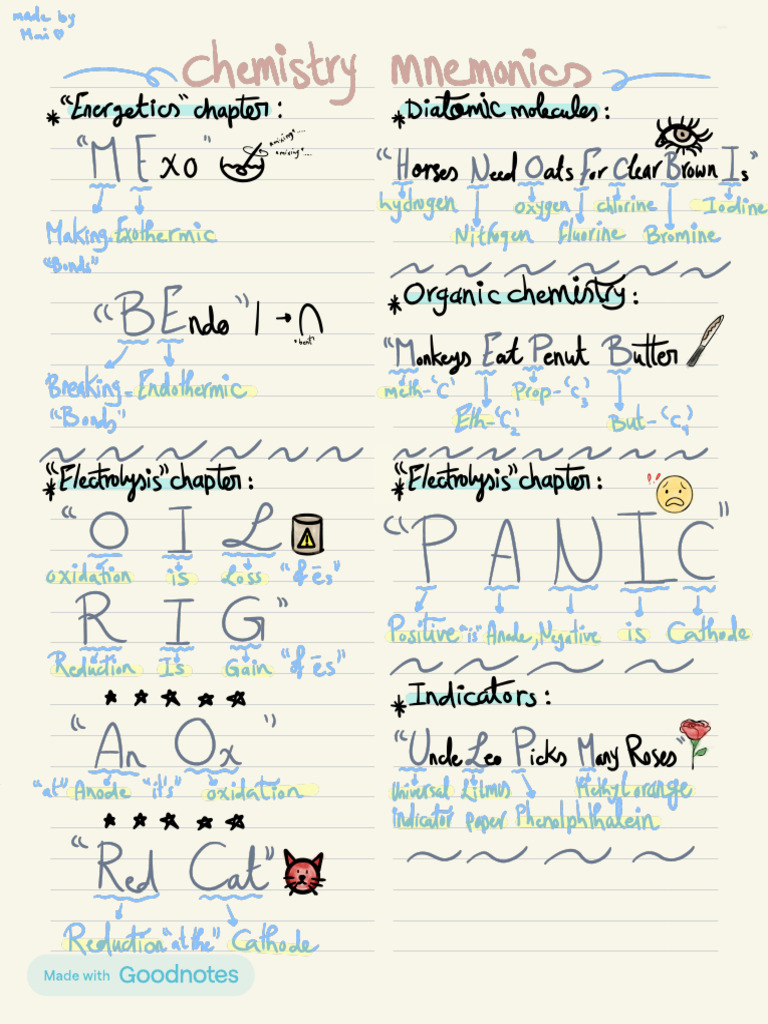 made by
Mai ♡
Chemistry mnemonics
* "Energetics" chapter:
"MExo"
amixing....
amixing....
Making Exothermic
"Bonds"
"BEndo" | → ∩
"bent"
Breaking Endothermic
"Bonds"
* "Electrolysis" chapter:
"O I L
oxidation is Loss "of ēs"
R I G"
Reduction Is Gain "of ēs"
"An Ox"
"at" Anode "it's" oxidation
"Red Cat"
Reduction "at the" Cathode
* Diatomic molecules:
"Horses Need Oats For Clear Brown Is"
hydrogen oxygen chlorine Iodine
Nitrogen fluorine Bromine
* Organic chemistry:
"Monkeys Eat Penut Butter
meth-'C' Prop-'C₃'
Eth-'C₂' But-'C₄'
* "Electrolysis" chapter:
"P A N I C"
Positive "is" Anode, Negative is Cathode
* Indicators:
"Uncle Leo Picks Many Roses"
Universal Litmus Methyl orange
indicator paper Phenolphthalein
Made with Goodnotes